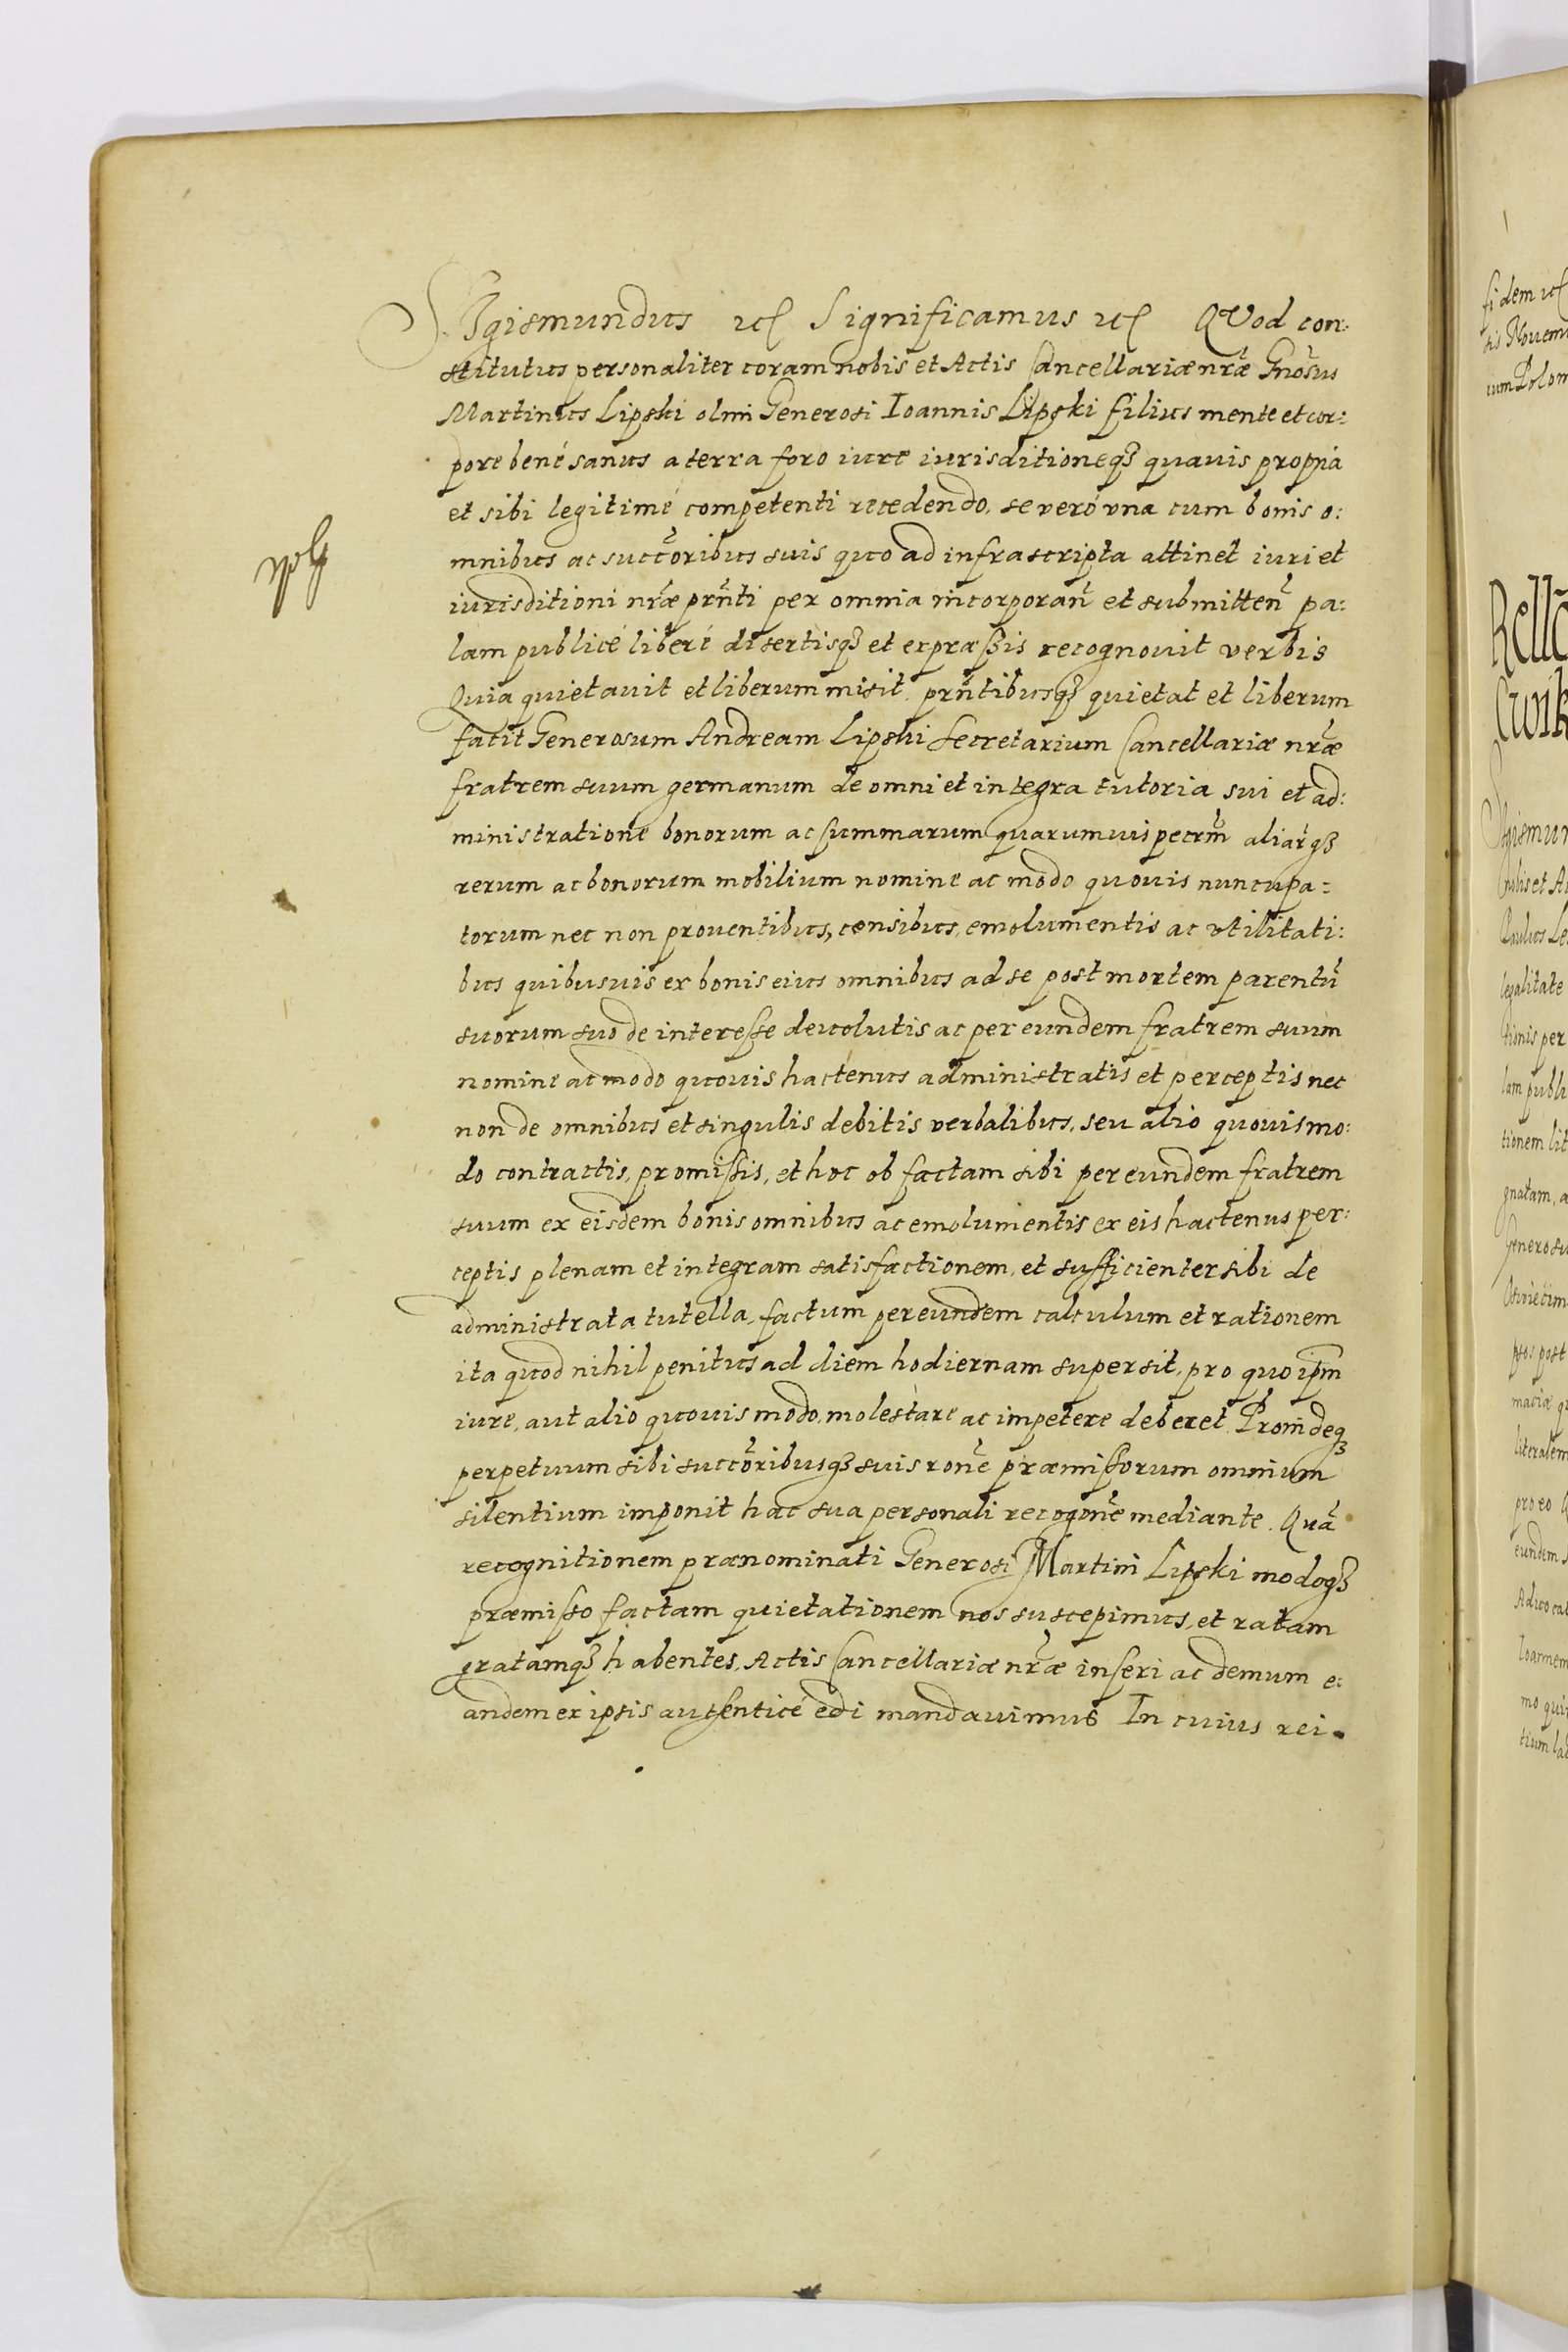 SIgismundus etc Significamus etc QVod con:
stitutus personaliter coram nobis et Actis Cancellariæ nr̃æ Gnõsus
Martinus Lipski olim Generosi Ioannis Lipski filius mente et cor:
pore benè sanus a terra foro iure iurisditioneq3 quavis propria
et sibi legitimè competenti recedendo, se verò vna cum bonis o:
mnibus ac succõribus suis quo ad infrascripta attinet iuri et
iurisditioni nr̃æ prñti per omnia incorporan̄ et submitten̄ pa:
lam publicè liberè disertisq3 et expræssis recognouit verbis
Quia quietauit et liberum misit prñtibusq3 quietat et liberum
facit Generosum Andream Lipski Secretarium Cancellariæ nr̃æ
fratrem suum germanum de omni et integra tutoria sui et ad:
ministratione bonorum ac summarum quarumuis pecrm̃ aliar̃q3
rerum ac bonorum mobilium nomine ac modo quouis nuncupa:
torum nec non prouentibus, censibus, emolumentis ac vtilitati:
bus quibusuis ex bonis eius omnibus ad se post mortem parentũ
suorum suo de interesse deuolutis ac per eundem fratrem suum
nomine ac modo quouis hactenus administratis et perceptis nec
non de omnibus et singulis debitis verbalibus, seu alio quouis mo:
do contractis, promissis, et hoc ob factam sibi per eundem fratrem
suum ex eisdem bonis omnibus ac emolumentis ex eis hactenus per:
ceptis plenam et integram satisfactionem, et sufficienter sibi de
administrata tutella, factum per eundem calculum et rationem
ita quod nihil penitus ad diem hodiernam supersit, pro quo ipm̃
iure, aut alio quouis modo, molestare ac impetere deberet Proindeq3
perpetuum sibi succõribusq3 suis rone᷉ præmissorum omnium
silentium imponit hac sua personali recogone᷉ mediante. Quã
recognitionem prænominati Generosi Martini Lipski modoq3
præmisso factam quietationem nos suscepimus, et ratam
gratamq3 habentes, Actis Cancellariæ nr̃æ inseri ac demum e:
andem ex ipsis autenticè edi mandauimus In cuius rei
fidem etc
Rellã